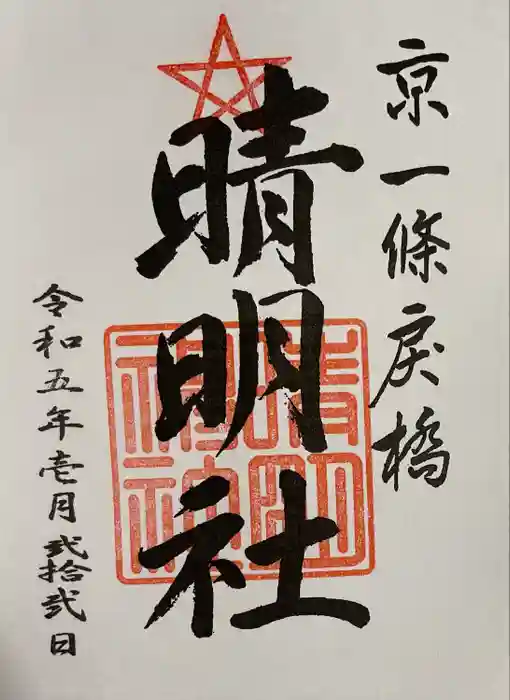 京一條戻橋
晴明社
晴明
神社
令和五年壱月弐拾弐日